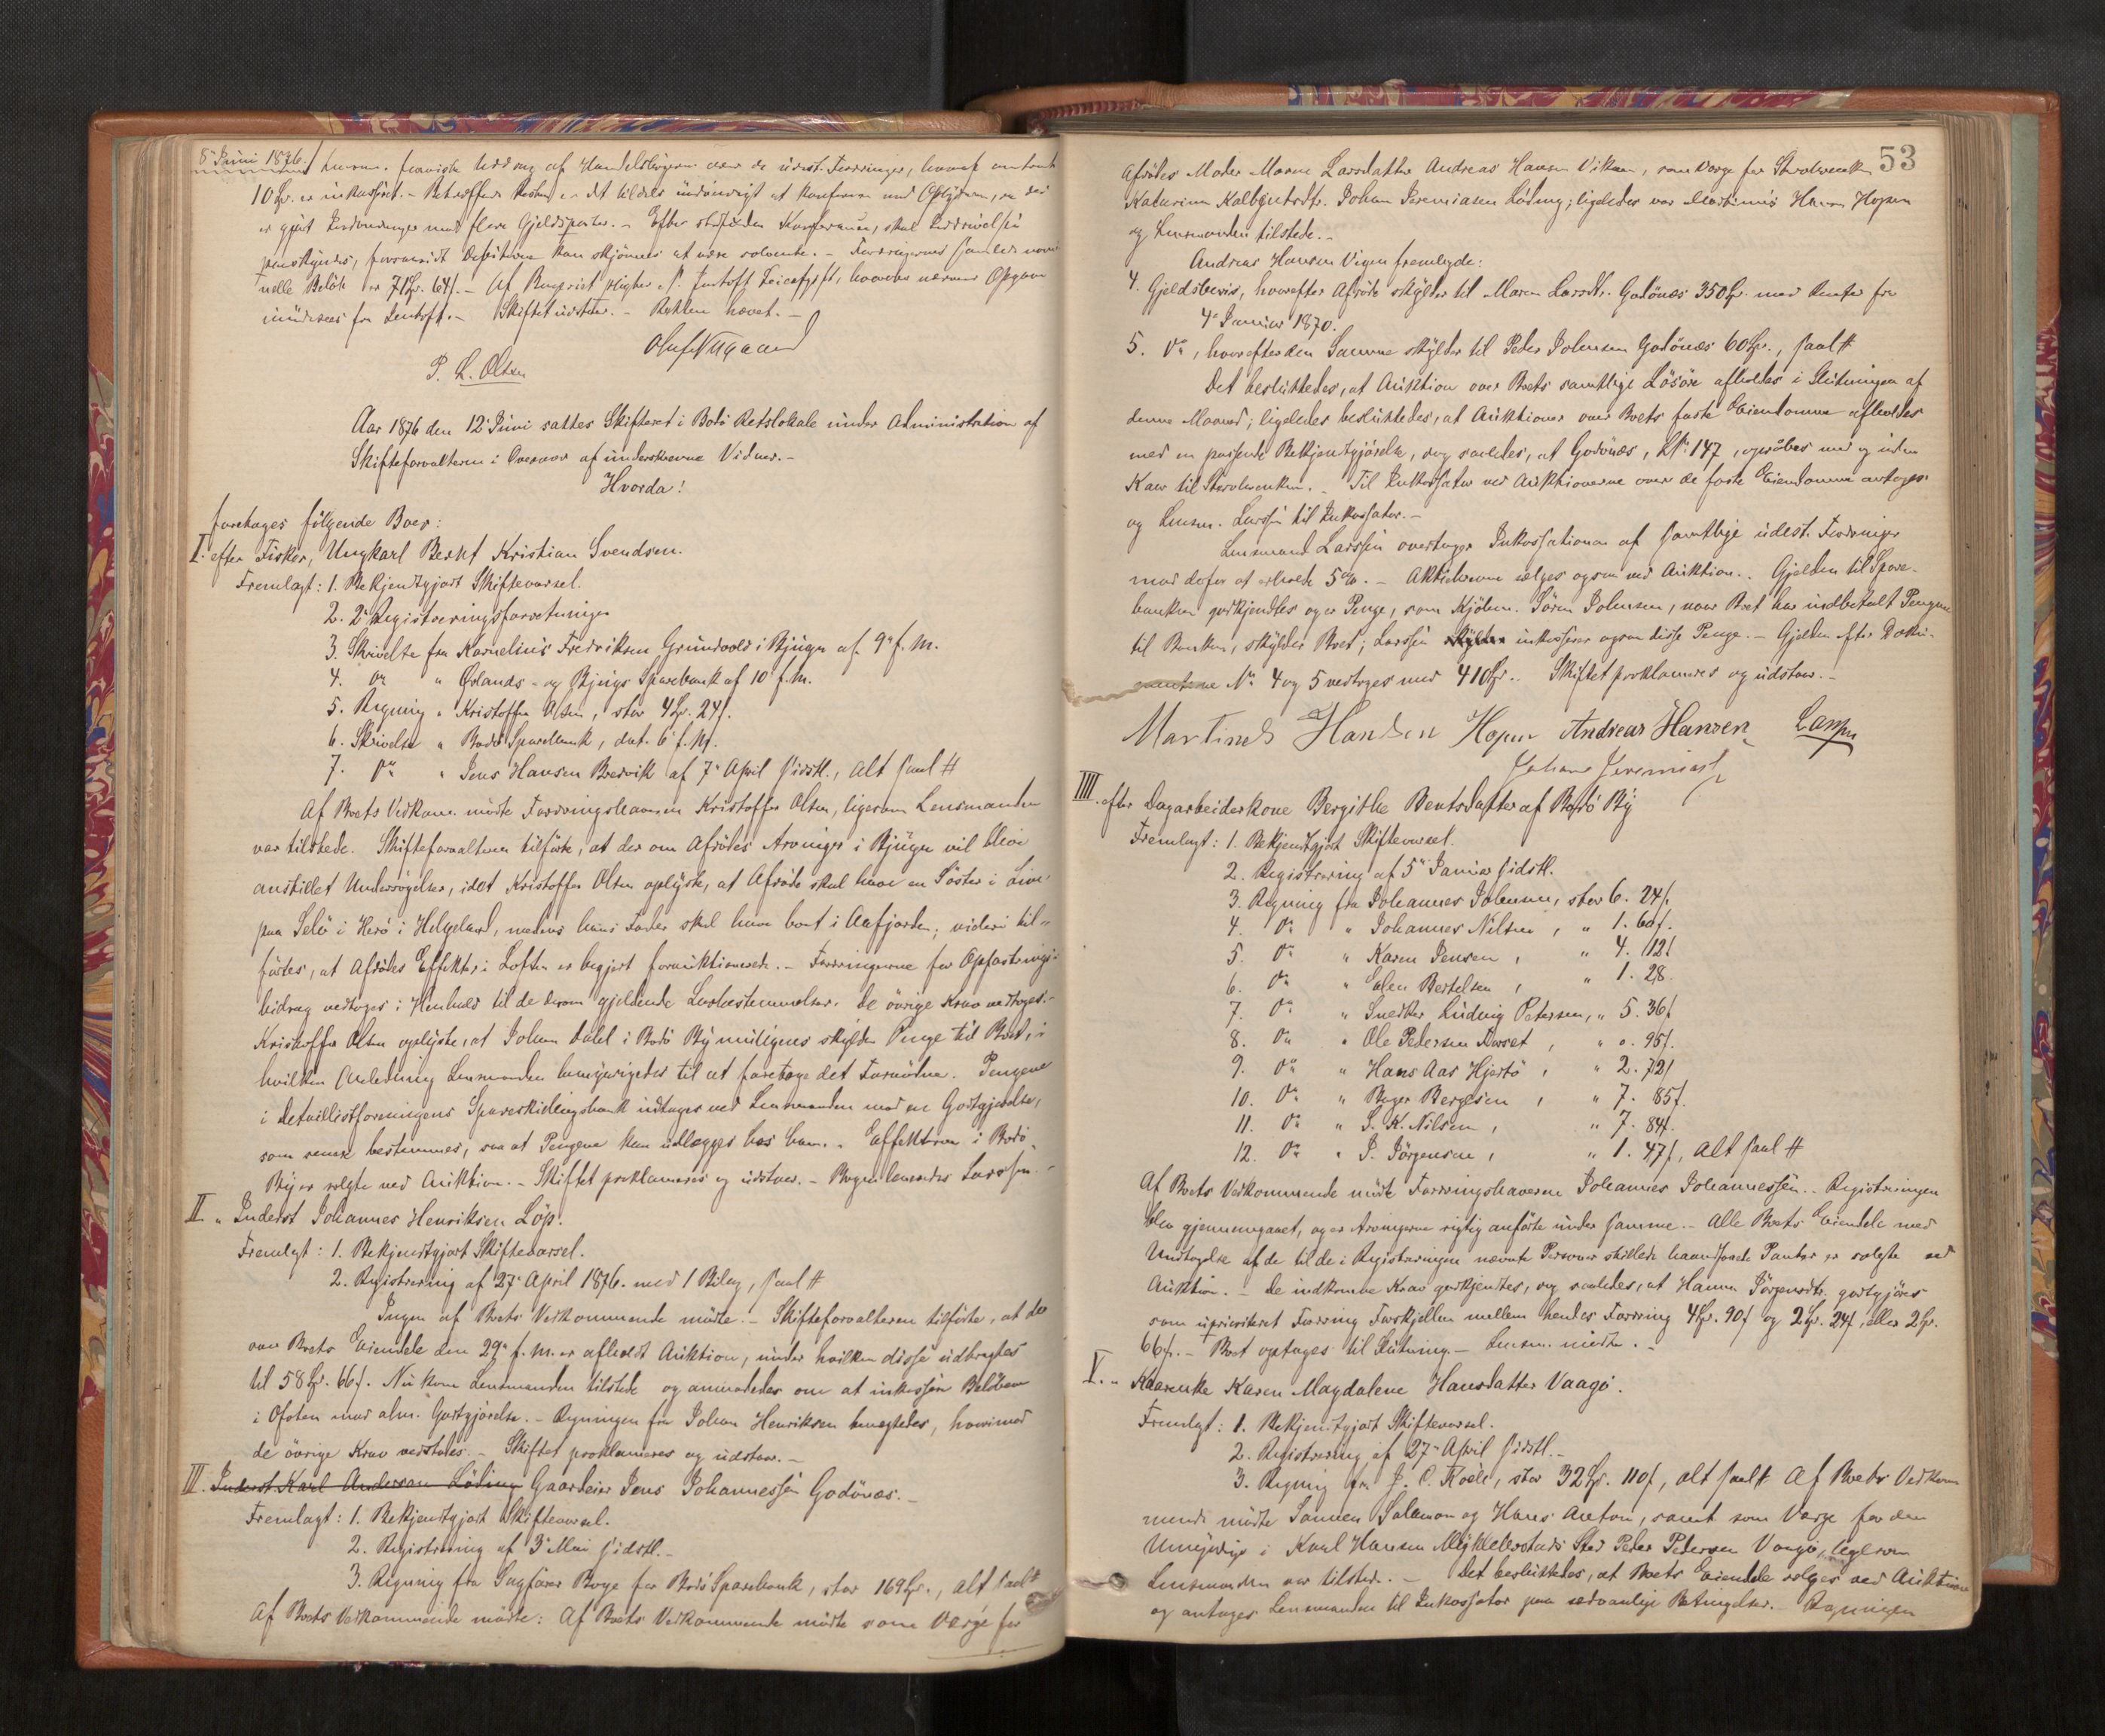 8de Juni 1876.
10 Spd. er inkasseret. - Betræffende Resten er det tildels nødvendigt at konferere med Opbyderen, da der
er gjort Indvendinger mod flere Gjeldsposter. - Efter stedfunden Konference, skal Inddrivelsen
paaskyndes, forsaavidt Debitorerne kan skjønnes at være solvente. - Fordringernes samlede nomi-
nelle Beløb er 71 Spd. 64 s. - Af Boet
imødesees fra Lentoft. - Skiftet udstaar. - Retten hævet. -
Oluf Nygaard
P. L. Olsen
Aar 1876 den 12te Juni sattes Skifteret i Bodø Retslokale under Administration af
Skifteforvalteren i Overvær af underskrevne Vidner. -
Hvorda!
foretages følgende Boer:
I. efter Fisker, Ungkarl Bernt Kristian Svendsen.
Fremlagt: 1. Bekjendtgjort Skiftevarsel.
2. 2de Registreringsforretninger
3. Skrivelse fra Kornelius Fredriksen Grundvold i Bjugn af 9de f. M.
4. Do " Ørlands- og Bjugns Sparebank af 10de f. M.
5. Regning " Kristoffer Olsen, stor 4 Spd. 24 s.
6. Skrivelse " Bodø Sparebank, dat. 6te f. M.
7. Do " Jens Hansen Bredvik af 7de April sidstl., Alt saal #
Af Boets Vedkom. mødte Fordringshaveren Kristoffer Olsen, ligesom Lensmanden
var tilstede. Skifteforvalteren tilførte, at der om Afdødes Arvinger i Bjugn vil blive
anstillet Undersøgelser, idet Kristoffer Olsen oplyste, at Afdøde skal have en Søster i Live
paa Selø i Herø i Helgeland, medens hans Fader skal have boet i Aafjorden; videre til-
førtes, at Afdødes Effekter i Lofoten er begjært forauktionerede. - Fordringerne for Opfostrings-
bidrag vedtoges i Henhold til de derom gjeldende Lovbestemmelser. De øvrige Krav vedtoges. -
Kristoffer Olsen oplyste, at Johan Dahl i Bodø By muligens skylder Penge til Boet, i
hvilken Anledning Lensmanden bemyndigedes til at foretage det Fornødne. Pengene
i Detaillistforeningens Spareskillingsbank indtages ved Lensmanden mod en Godtgjørelse,
som senere bestemmes, saa at Pengene kan udlægges hos ham. - Effekterne i Bodø
By er solgte ved Auktion. - Skiftet proklameres og udstaar. - Bogen leveredes Larssen. -
II. " Inderst Johannes Henriksen Løp.
Fremlagt: 1. Bekjendtgjort Skiftevarsel.
2. Registrering af 27de April 1876. med 1 Bilag, saal #
Ingen af Boets Vedkommende mødte. - Skifteforvalteren tilførte, at der
over Boets Eiendele den 29de f. M. er afholdt Auktion, under hvilken disse udbragtes
til 58 Spd. 66 s. Nu kom Lensmanden tilstede og anmodedes om at inkassere Beløbene
i Ofoten mod alm. Godtgjørelse. - Regningen fra Johan Henriksen benægtedes, hvorimod
de øvrige Krav vedtoges. - Skiftet proklameres og udstaar. -
III. Inderst Karl Andersen Løding Gaardeier Jens Johannessen Godønæs. -
Fremlagt: 1. Bekjendtgjort Skiftevarsel.
2. Registrering af 3de Mai sidstl. -
3. Regning fra Sagfører Boye for Bodø Sparebank, stor 169 Spd., alt saal #
Af Boets Vedkommende mødte: Af Boets Vedkommende mødte som Værge for
53
Afdødes Moder Maren Larsdatter Andreas Hansen Viken, som Værge for Stervboenken
Katarina Kolbjørnsdtr. Johan Jeremiasen Løding; ligeledes var Martinus Hansen Hopen
og Lensmanden tilstede. -
Andreas Hansen Vigen fremlagde:
4. Gjeldsbevis, hvorefter Afdøde skylder til Maren Larsdtr. Godønæs 350 Spd. med Renter fra
4de Januar 1870.
5. Do, hvorefter den Samme skylder til Peder Johnsen Godønæs 60 Spd., saal #
Det besluttedes, at Auktion over Boets samtlige Løsøre afholdes i Slutningen af
denne Maaned; ligeledes besluttedes, at Auktioner over Boets faste Eiendomme afholdes
med en passende Bekjendtgjørelse, dog saaledes, at Godønæs, L.No. 147, opraabes med og uden
Kaar til Stervboenken. - Til Inkassator ved Auktionerne over de faste Eiendomme antages
og Lensm. Larssen til Inkassator. -
Lensmand Larssen overtager Inkassationen af samtlige udest. Fordringer
mod derfor at erholde 5 %. - Aktiebrevene sælges ogsaa ved Auktion. - Gjelden til Spare-
banken godkjendtes og er Penge, som Kjøbm. Søren Johnsen, naar Boet har indbetalt Pengene
til Banken, skylder Boet; Larssen skylder inkasserer ogsaa disse Penge. - Gjelden efter Doku-
menterne No. 4 og 5 vedtoges med 410 Spd. - Skiftet proklameres og udstaar. -
Martinus Hansen Hopen Andreas Hansen Larssen
Johan Jeremias.
IIII. efter Dagarbeiderkone Bergithe Berntsdatter af Bodø By
Fremlagt: 1. Bekjendtgjort Skiftevarsel.
2. Registrering af 5te Januar sidstl.
3. Regning fra Johannes Johnsen, stor 6. 24 s.
4. Do " Johannes Nilsen, " 1. 60 s.
5. Do " Karen Jensen, " 4. 12 s
6. Do " Elen Bertelsen, " 1. 28.
7. Do " Snedker Ludvig Petersen, " 5. 36 s
8. Do " Ole Pedersen, " 0. 95 s.
9. Do " Hans Aas Hjertø, " 2. 72 s
10. Do " Birger Bergesen, " 7. 85 s.
11. Do " S. K. Nilsen, " 7. 84 s.
12. Do " P. Jørgensen, " 1. 47 s, Alt saal #
Af Boets Vedkommende mødte Fordringshaverne Johannes Johannessen. - Registreringen
blev gjennemgaaet, og er Arvingerne rigtig anførte under samme. - Alle Boets Eiendele med
Undtagelse af de til de i Registreringen nævnte Personer stillede haandfaaede Panter er solgte ved
Auktion. - De indkomne Krav godkjendtes, dog saaledes, at Hanna Jørgensdtr. godtgjøres
som uprioriteret Fordring Forskjellen mellem hendes Fordring 4 Spd. 90 s og 2 Spd. 24 s, eller 2 Spd.
66 s. - Boet optages til Slutning. - Lensm. mødte. -
V. " Kaarenke Karen Magdalene Hansdatter Vaagø.
Fremlagt: 1. Bekjendtgjort Skiftevarsel.
2. Registrering af 27de April sidstl. -
3. Regning fra J. C. Koch, stor 32 Spd. 110 s, alt saal # Af Boets Vedkom-
mende mødte Sønnen Salamon og Hans Anton, samt som Værge for den
Umyndige i Karl Hansen Myklebostads Sted Peder Pedersen Vaagø, ligesom
Lensmanden var tilstede. - Det besluttedes, at Boets Eiendele sælges ved Auktion
og antages Lensmanden til Inkassator paa sedvanlige Betingelser. - Regningen